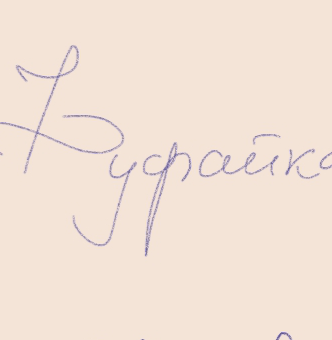 Куфайка